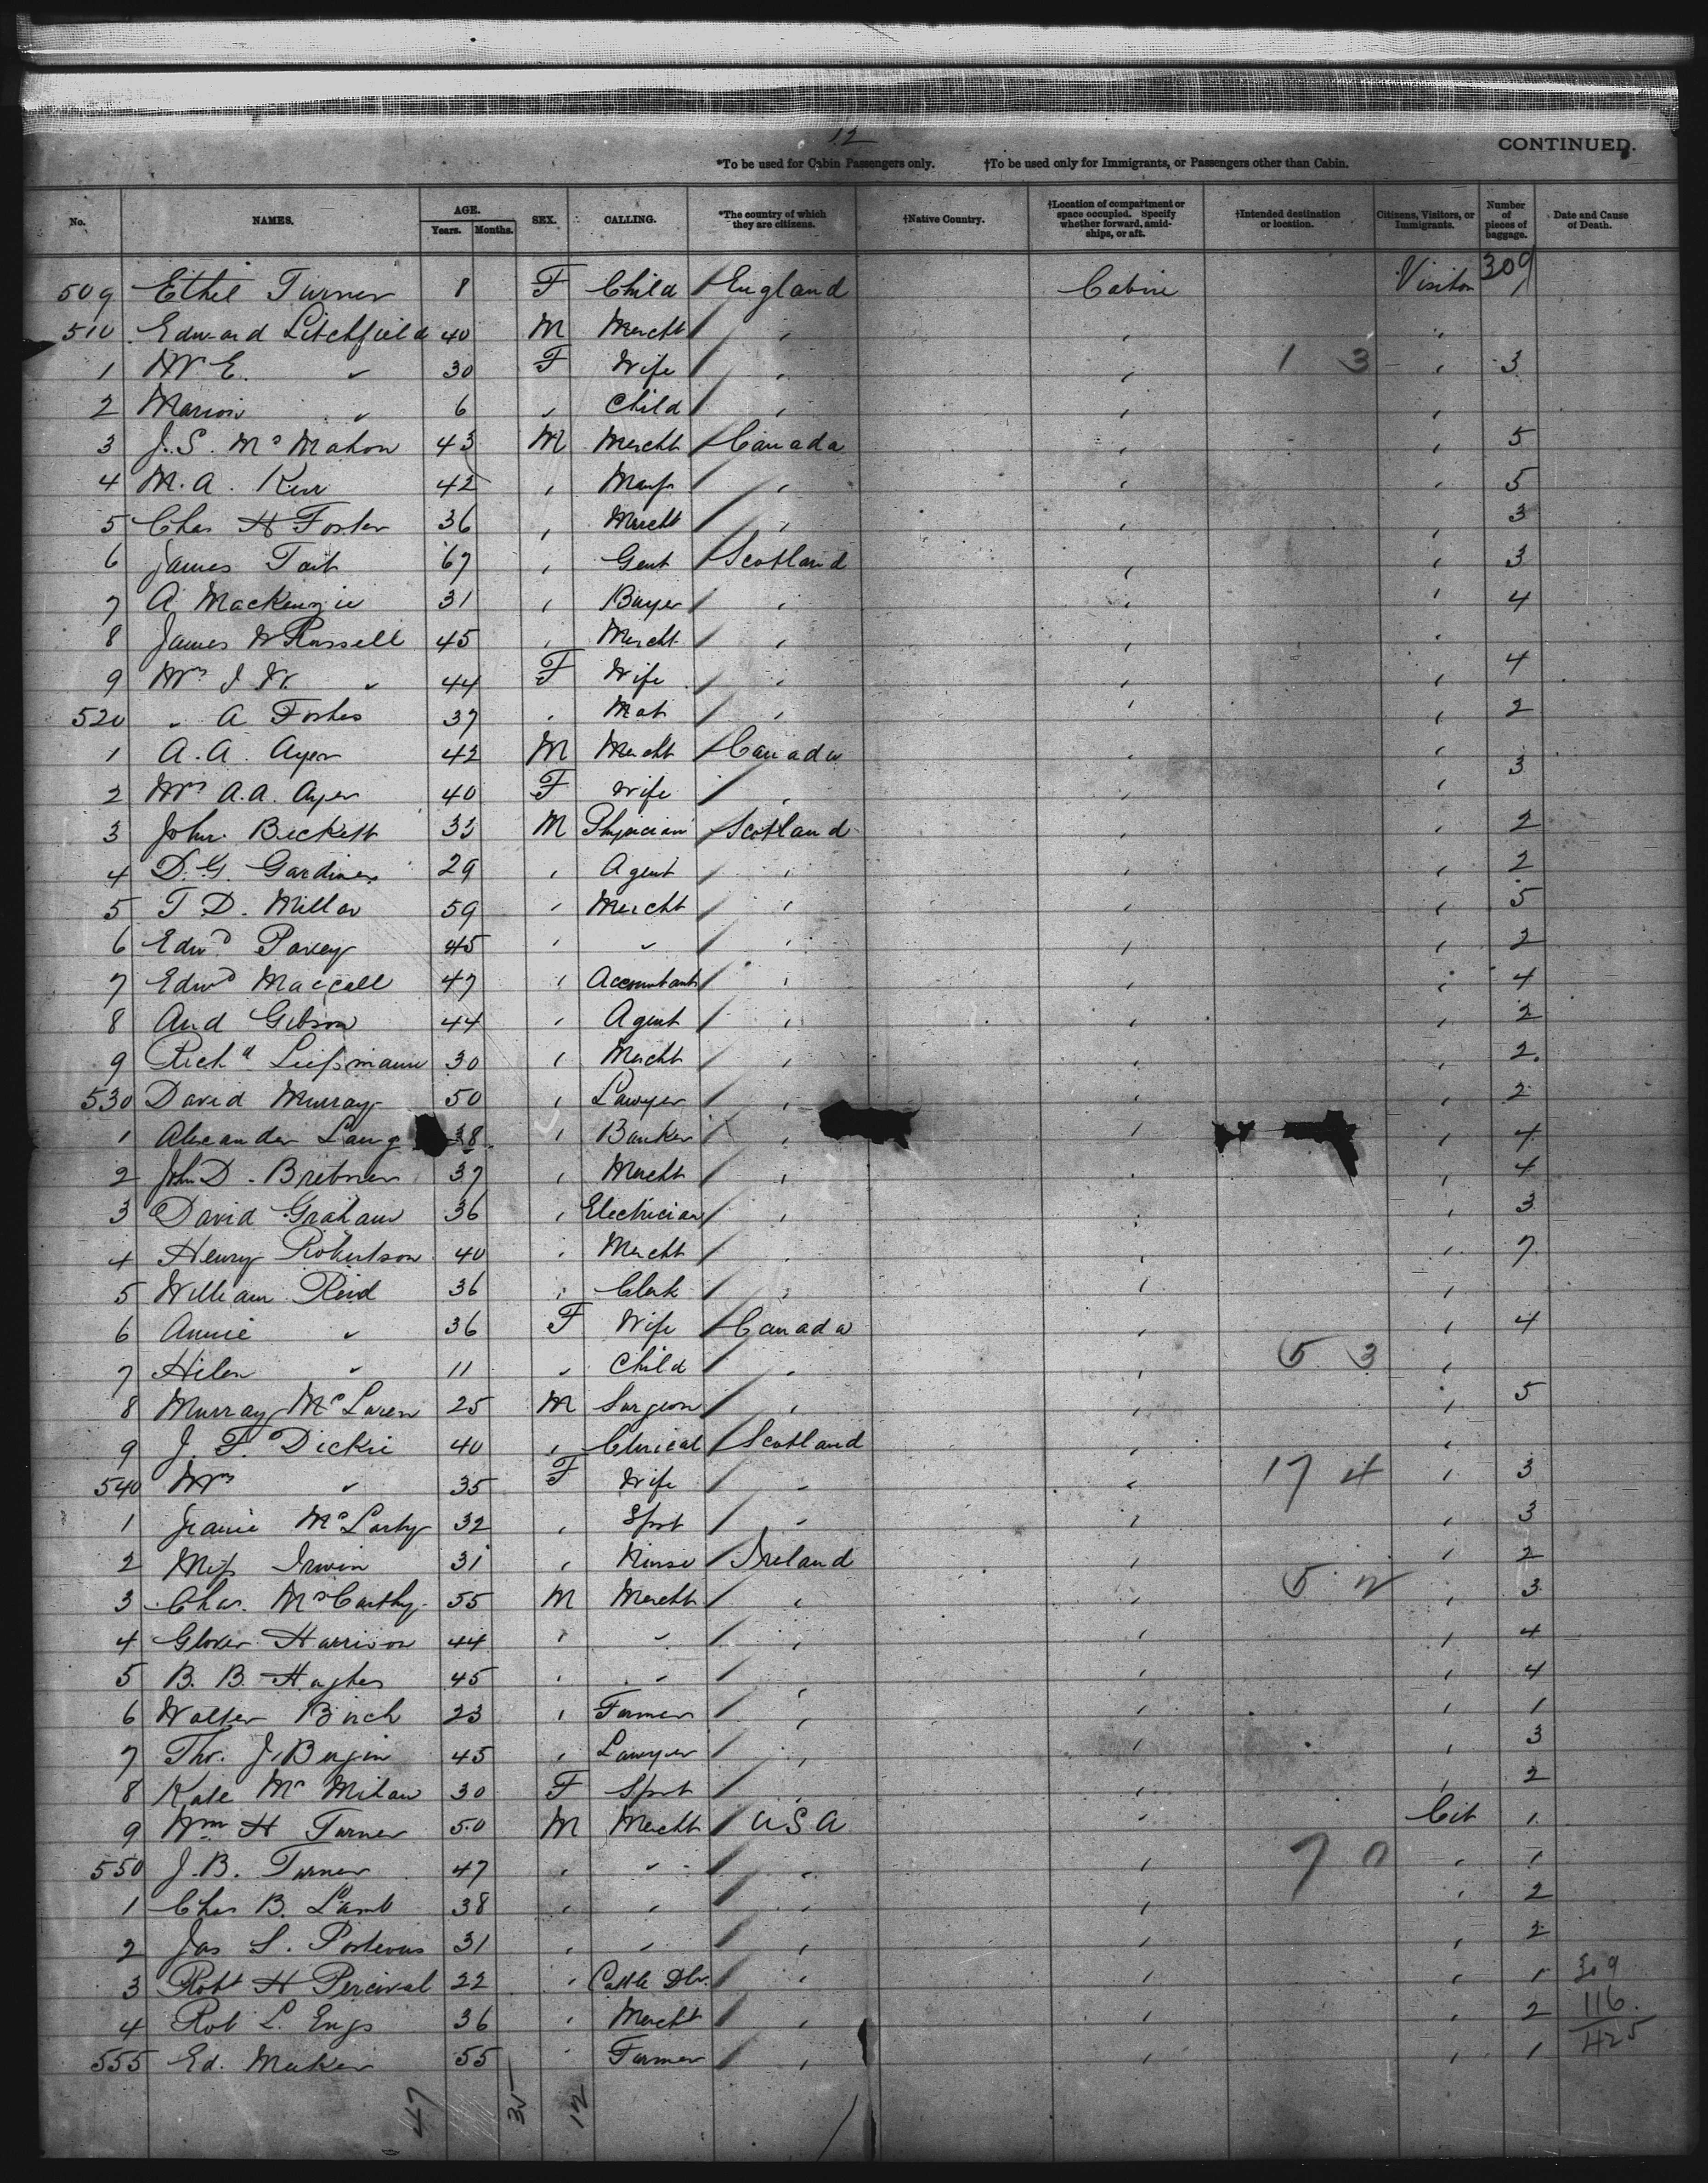 12
CONTINUED.
*To be used for Cabin Passengers only. †To be used only for Immigrants, or Passengers other than Cabin.
No. NAMES. AGE. Years. Months. SEX. CALLING. *The country of which they are citizens. †Native Country. †Location of compartment or space occupied. Specify whether forward, amidships, or aft. †Intended destination or location. Citizens, Visitors, or Immigrants. Number of pieces of baggage. Date and Cause of Death.
309
509 Ethel Turner 8 F Child England Cabin Visitor 1
510 Edward Litchfield 40 M Mercht " " "
1 Mrs E. " 30 F Wife " " 1 3 " 3
2 Marion " 6 " Child " " "
3 J. S. McMahon 43 M Mercht Canada " " 5
4 M. A. Kerr 42 " Manfr " " " 5
5 Chas H Foster 36 " Mercht " " " 3
6 James Tait 67 " Gent Scotland " " 3
7 A. Mackenzie 31 " Buyer " " " 4
8 James W Russell 45 " Mercht " " "
9 Mrs J W. " 44 F Wife " " " 4
520 " A Forbes 37 " Mat " " " 2
1 A. A. Ayer 42 M Mercht Canada " "
2 Mrs A. A. Ayer 40 F Wife " " " 3
3 John Beckett 33 M Physician Scotland " " 2
4 D. G. Gardiner 29 " Agent " " " 2
5 T. D. Millar 59 " Mercht " " " 5
6 Edwd 45 " " " " " 2
7 Edwd Maccall 47 " Accountant " " " 4
8 And Gibson 44 " Agent " " " 2
9 Richd Liessmann 30 " Mercht " " " 2
530 David Murray 50 " Lawyer " " " 2
1 Alexander Lang 38 " Banker " " " 4
2 John D. Brebner 37 " Mercht " " " 4
3 David Graham 36 " Electrician " " " 3
4 Henry Robertson 40 " Mercht " " " 7
5 William Reid 36 " Clerk " " "
6 Annie " 36 F Wife Canada " " 4
7 Helen " 11 " Child " " 5 3 "
8 Murray McLaren 25 M Surgeon " " " 5
9 J. F. Dickie 40 " Clerical Scotland " "
540 Mrs " 35 F Wife " " 17 4 " 3
1 Jeanie McLarty 32 " Spst " " " 3
2 Miss Irwin 31 " Nurse Ireland " " 2
3 Chas. McCarthy 55 M Mercht " " 5 2 " 3
4 Glover Harrison 44 " " " " " 4
5 B. B. Hughes 45 " " " " " 4
6 Walter Birch 23 " Farmer " " " 1
7 Tho. J. Bergin 45 " Lawyer " " " 3
8 Kate 30 F Spst " " " 2
9 Wm H Turner 50 M Mercht U S A " Cit 1
550 J. B. Turner 47 " " " " 7 0 " 1
1 Chas B. Lamb 38 " " " " " 2
2 Jas S. Porteous 31 " " " " " 2
3 Robt H Percival 22 " Cattle Dlr. " " " 1 309
4 Rob L. Engs 36 " Mercht " " " 2 116
555 Ed. Meeker 55 " Farmer " " " 1 425
47 35 12